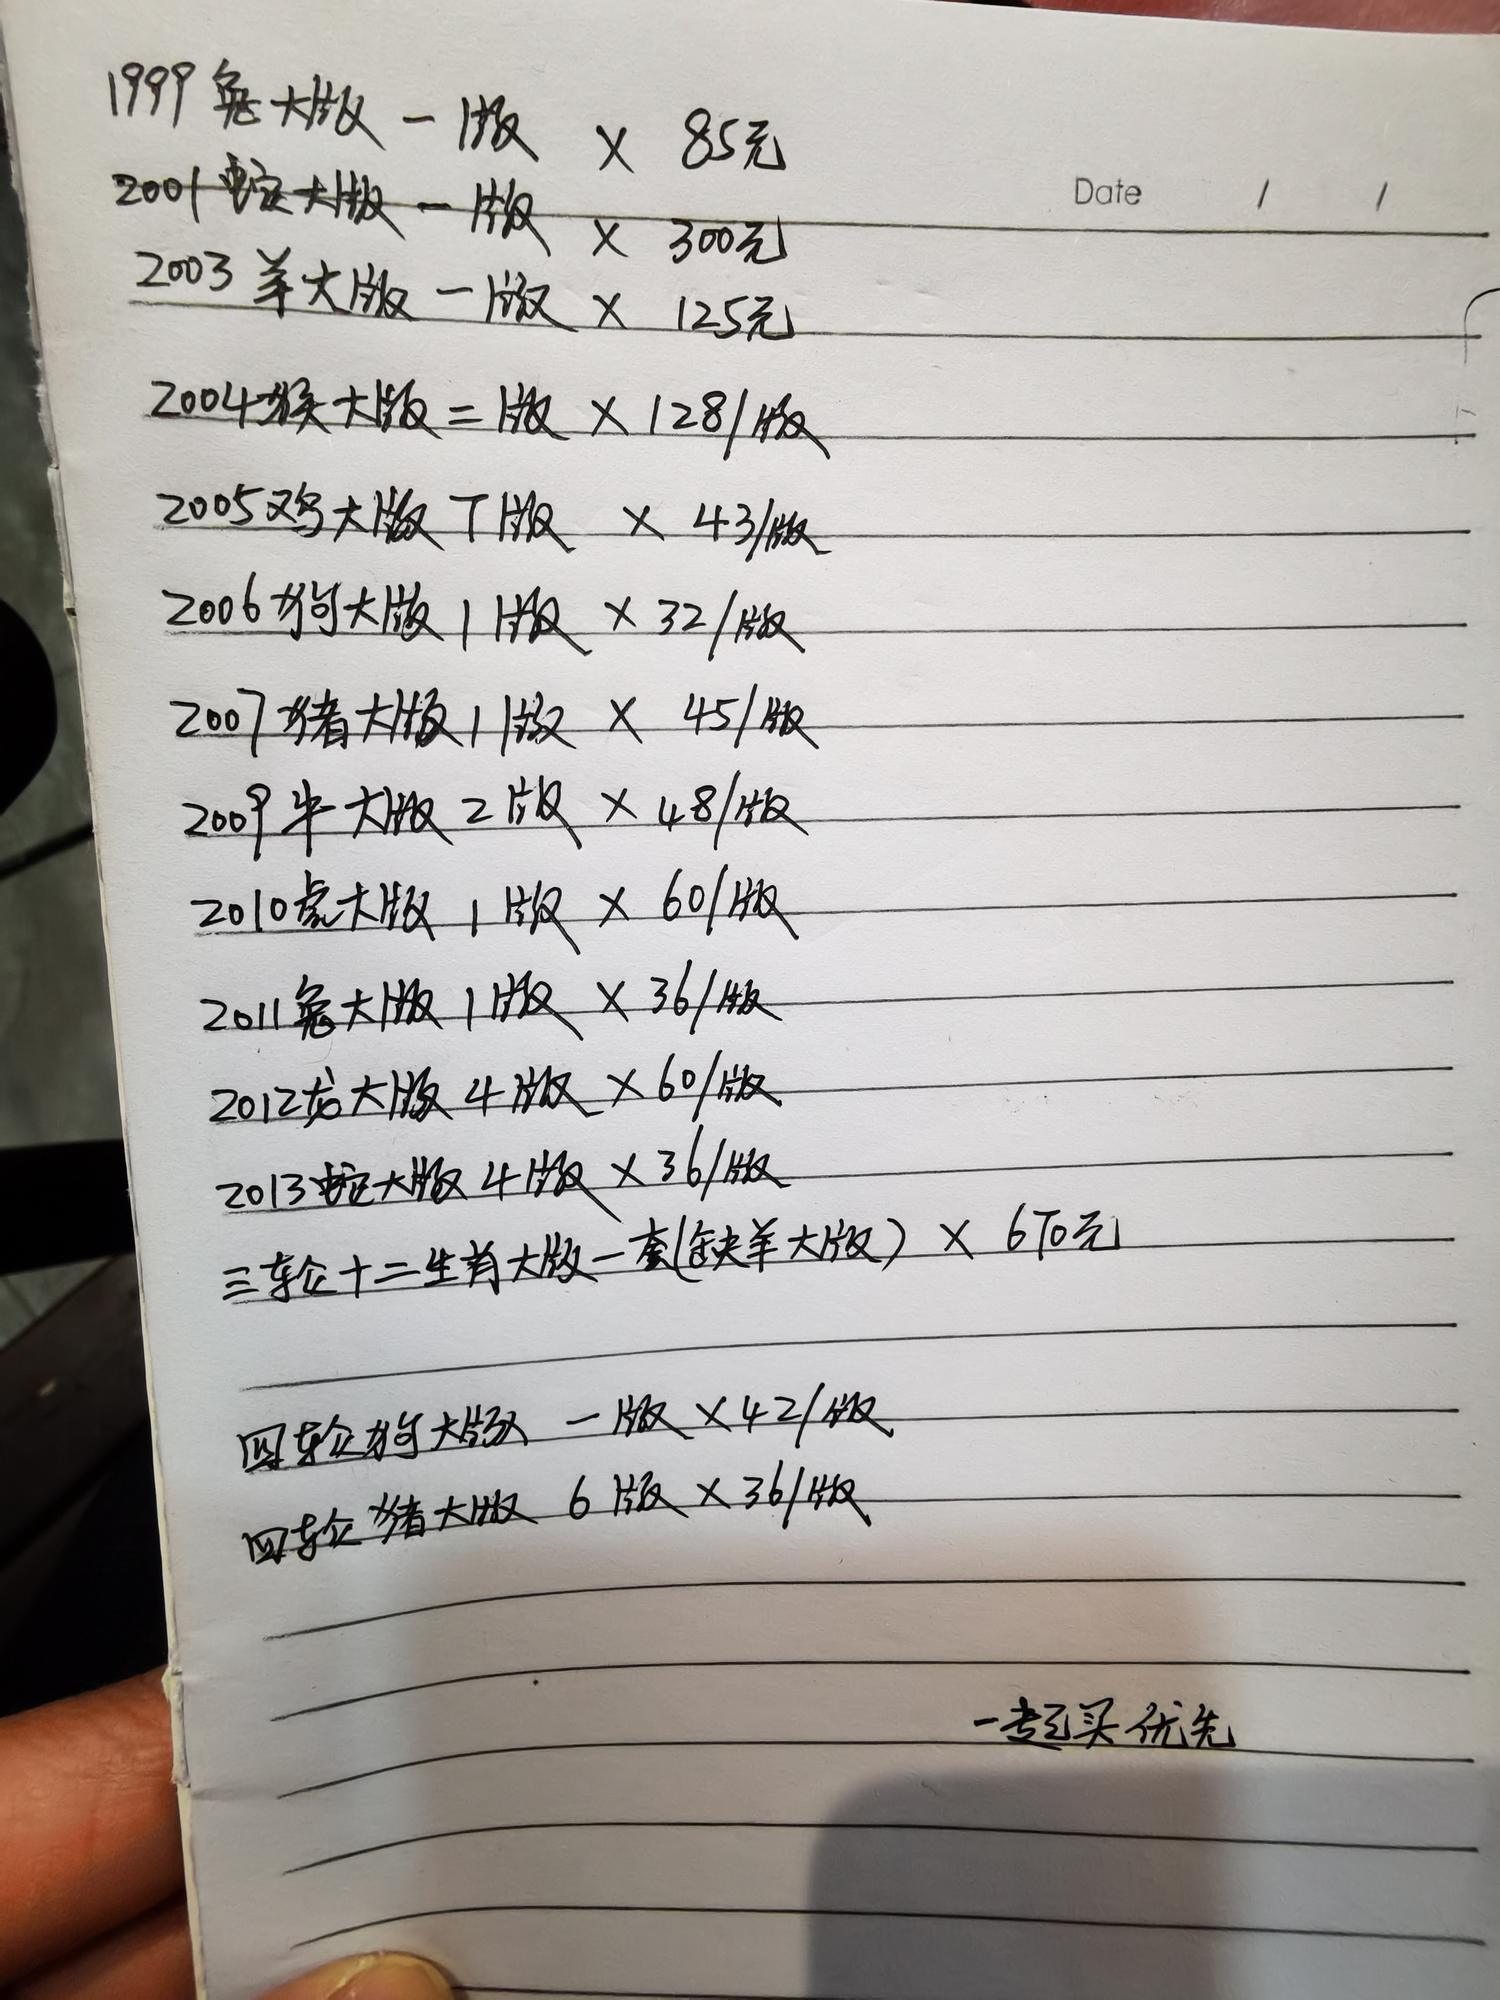 1999兔大版一版 × 85元
Date / /
2001蛇大版一版 × 300元
2003羊大版一版 × 125元
2004猴大版二版 × 128/版
2005鸡大版 版 × 43/版
2006狗大版1版 × 32/版
2007猪大版1版 × 45/版
2009牛大版2版 × 48/版
2010虎大版1版 × 60/版
2011兔大版1版 × 36/版
2012龙大版4版 × 60/版
2013蛇大版4版 × 36/版
三轮十二生肖大版一套(缺羊大版) × 元
四轮狗大版 一版 × 42/版
四轮猪大版 6版 × 36/版
一起买优先